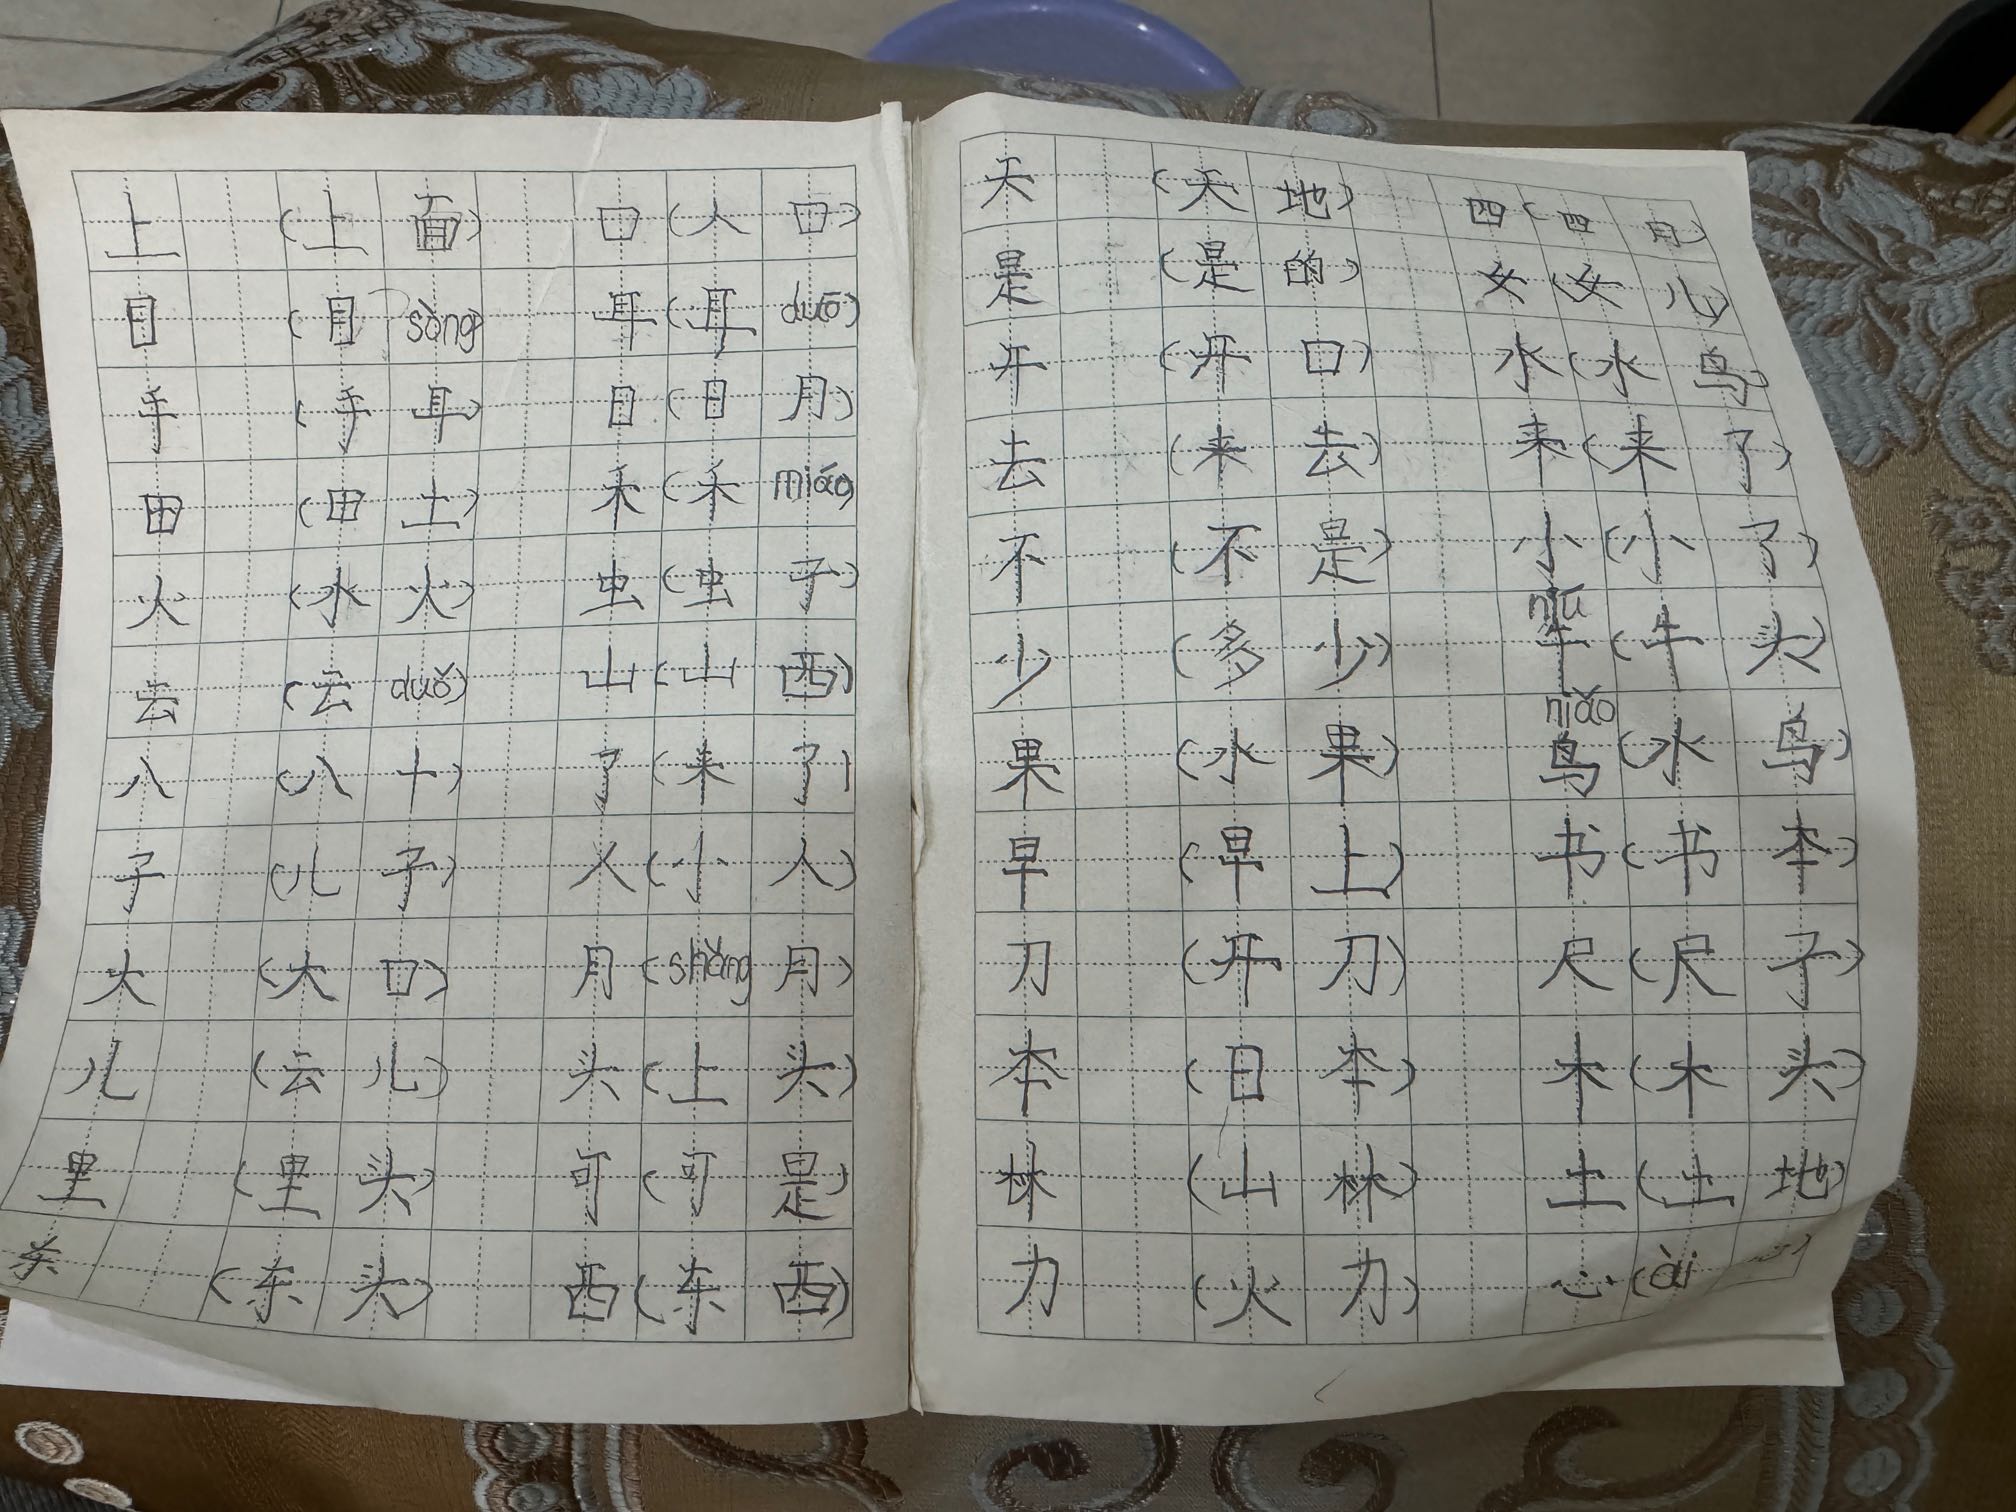 上 (上面) 口 (人口)
目 (目sòng) 耳 (耳duō)
手 (手耳) 日 (日月)
田 (田土) 禾 (禾miáo)
火 (水火) 虫 (虫子)
云 (云duǒ) 山 (山西)
八 (八十) 了 (来了)
子 (儿子) 人 (小人)
大 (大口) 月 (shǎng月)
儿 (云儿) 头 (上头)
里 (里头) 可 (可是)
东 (东头) 西 (东西)
天 (天地) 四 (四月)
是 (是的) 女 (女儿)
开 (开口) 水 (水鸟)
去 (来去) 来 (来了)
不 (不是) 小 (小了)
niú
少 (多少) 牛 (牛头)
niǎo
果 (水果) 鸟 (水鸟)
早 (早上) 书 (书本)
刀 (开刀) 尺 (尺子)
本 (日本) 木 (木头)
林 (山林) 土 (土地)
力 (火力) 心 (ài